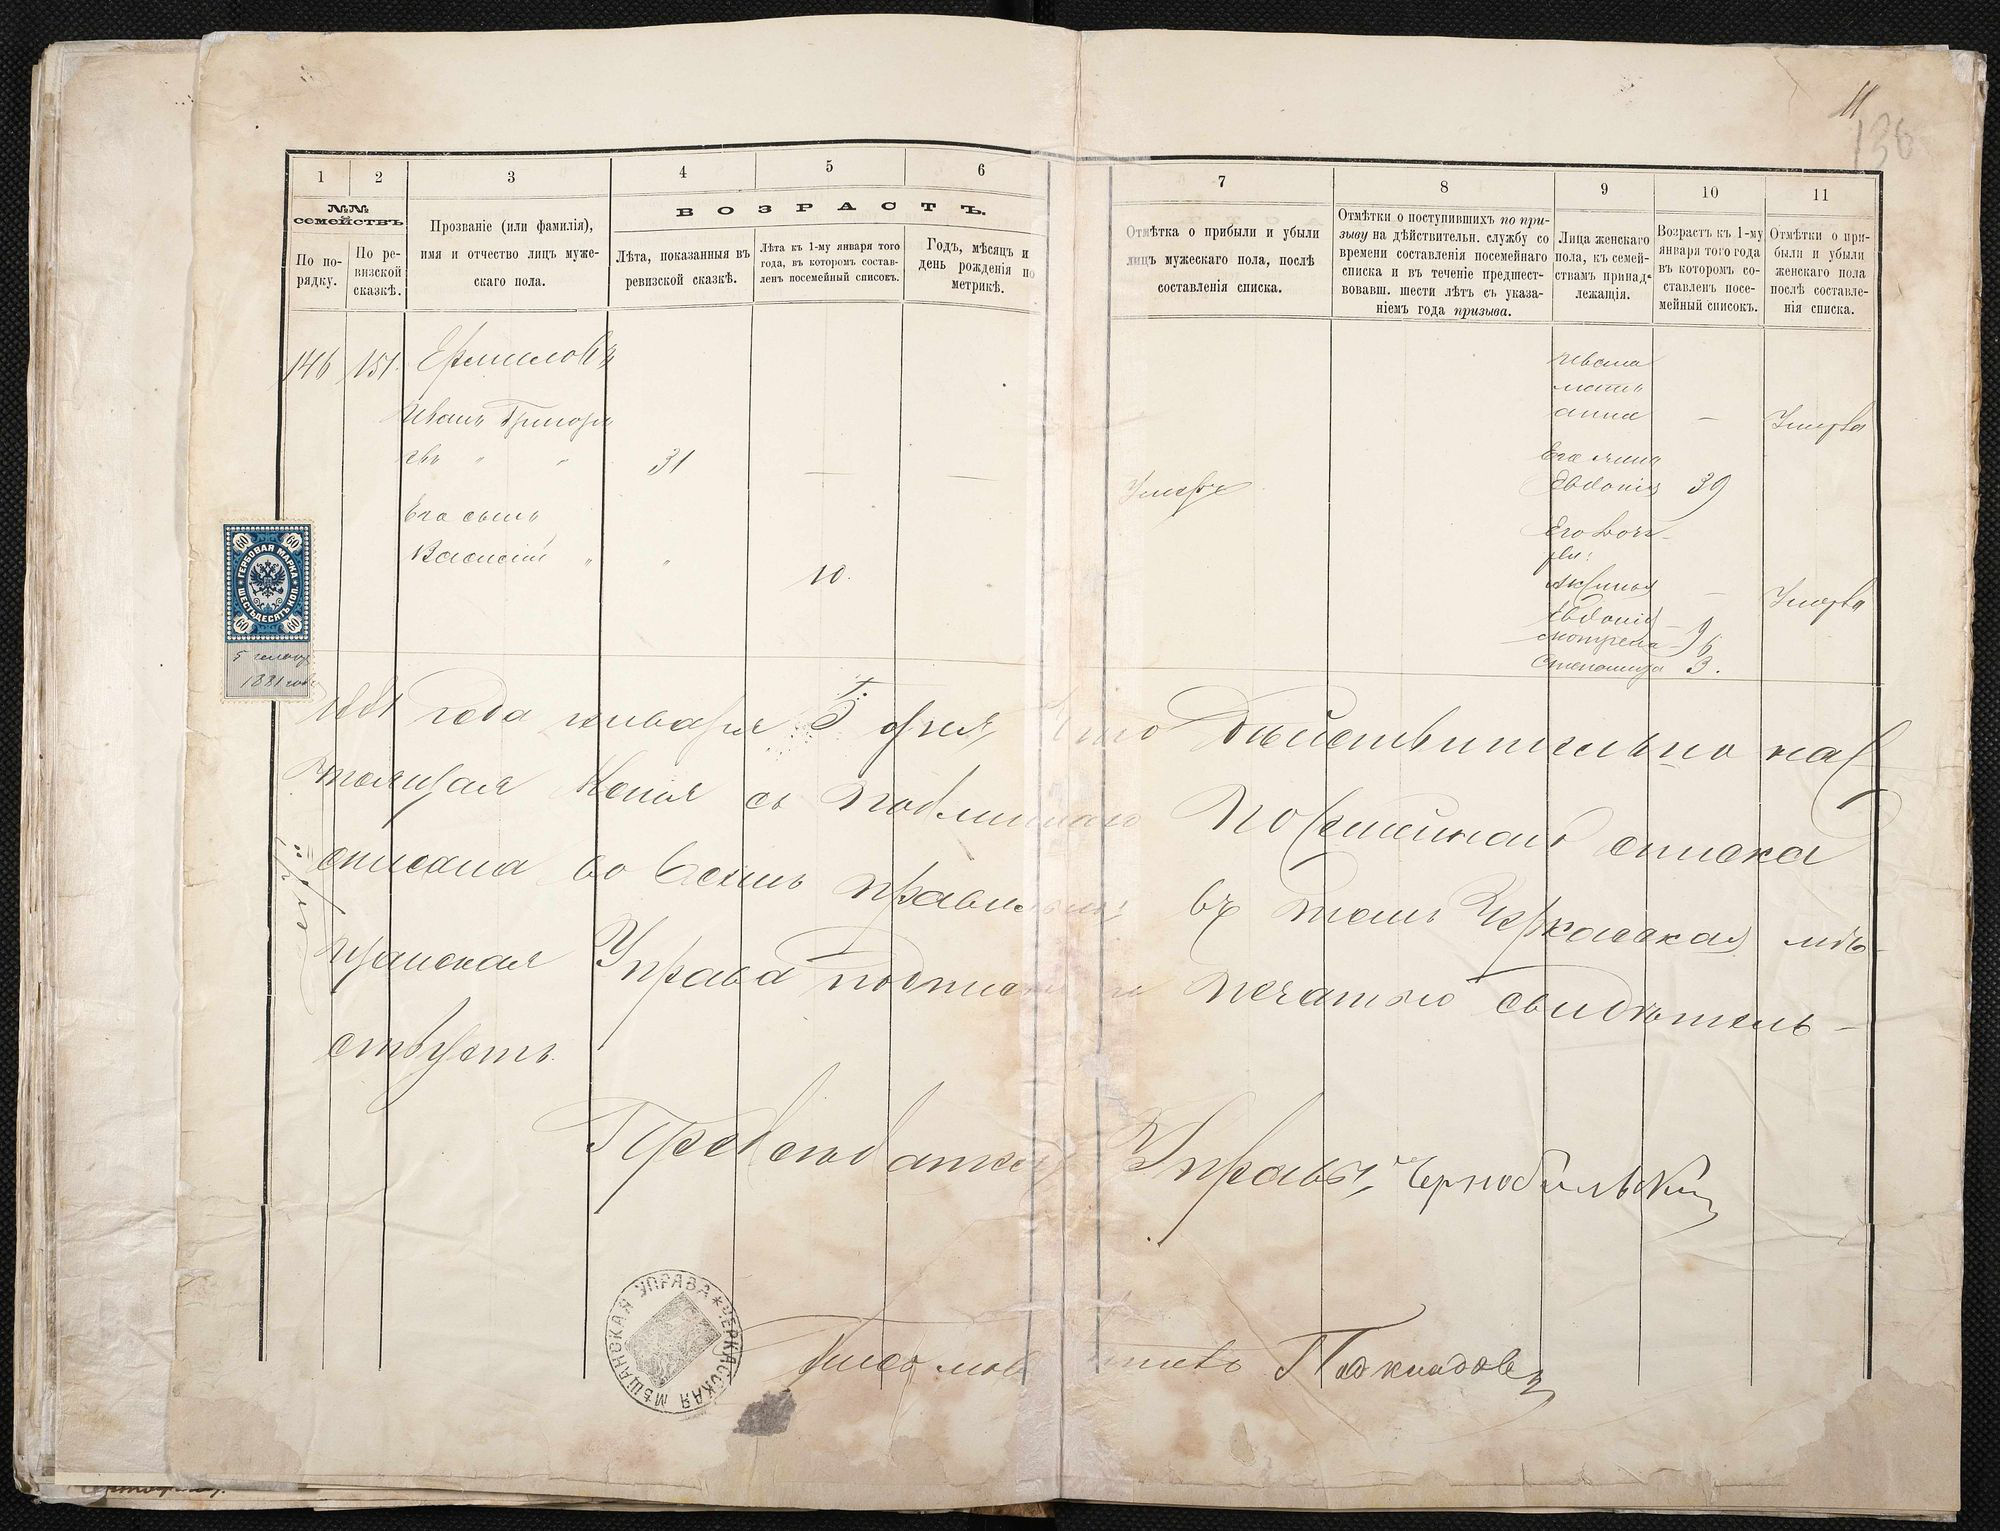 11
136
1 2 3 4 5 6 7 8 9 10 11
№№ семействъ
По порядку.
По ревизской сказкѣ.
Прозваніе (или фамилія),
имя и отчество лицъ муже-
скаго пола.
ВОЗРАСТЪ.
Лѣта, показанныя въ
ревизской сказкѣ.
Лѣта къ 1-му января того
года, въ которомъ состав-
ленъ посемейный списокъ.
Годъ, мѣсяцъ и
день рожденія по
метрикѣ.
Отмѣтка о прибыли и убыли
лицъ мужескаго пола, послѣ
составленія списка.
Отмѣтки о поступившихъ по при-
зыву на дѣйствительн. службу со
времени составленія посемейнаго
списка и въ теченіе предшест-
вовавш. шести лѣтъ съ указа-
ніемъ года призыва.
Лица женскаго
пола, къ семей-
ствамъ принад-
лежащія.
Возрастъ къ 1-му
января того года
въ которомъ со-
ставленъ посе-
мейный списокъ.
Отмѣтки о при-
были и убыли
женскаго пола
послѣ составле-
нія списка.
146 151. Ермиловъ
Ивана
мать
анна — Умерла
Иванъ Григорь
евъ " " 31 — — Умеръ
Его жена
Евдокія 39
Его сынъ
Василій " " 10.
Его доче-
ри:
Акулина — Умерла
Евдокія — 9
— 6
Степанида 3.
60 60
ГЕРБОВАЯ МАРКА
ШЕСТЬДЕСЯТЪ КОП.
60 60
5 генвар
1881 года
1881 года января 5 дня, Что Дѣйствительно нас
тоящая Копія съ подлиннаго посемейнаго списка
списана во всемъ правильно; въ томъ Черкасская мѣ-
щанская Управа подписью и печатью свидѣтель-
ствуетъ.
Предсѣдатель Управы, Чернобыльскій
ЧЕРКАССКАЯ МѢЩАНСКАЯ УПРАВА
Письмоводитель